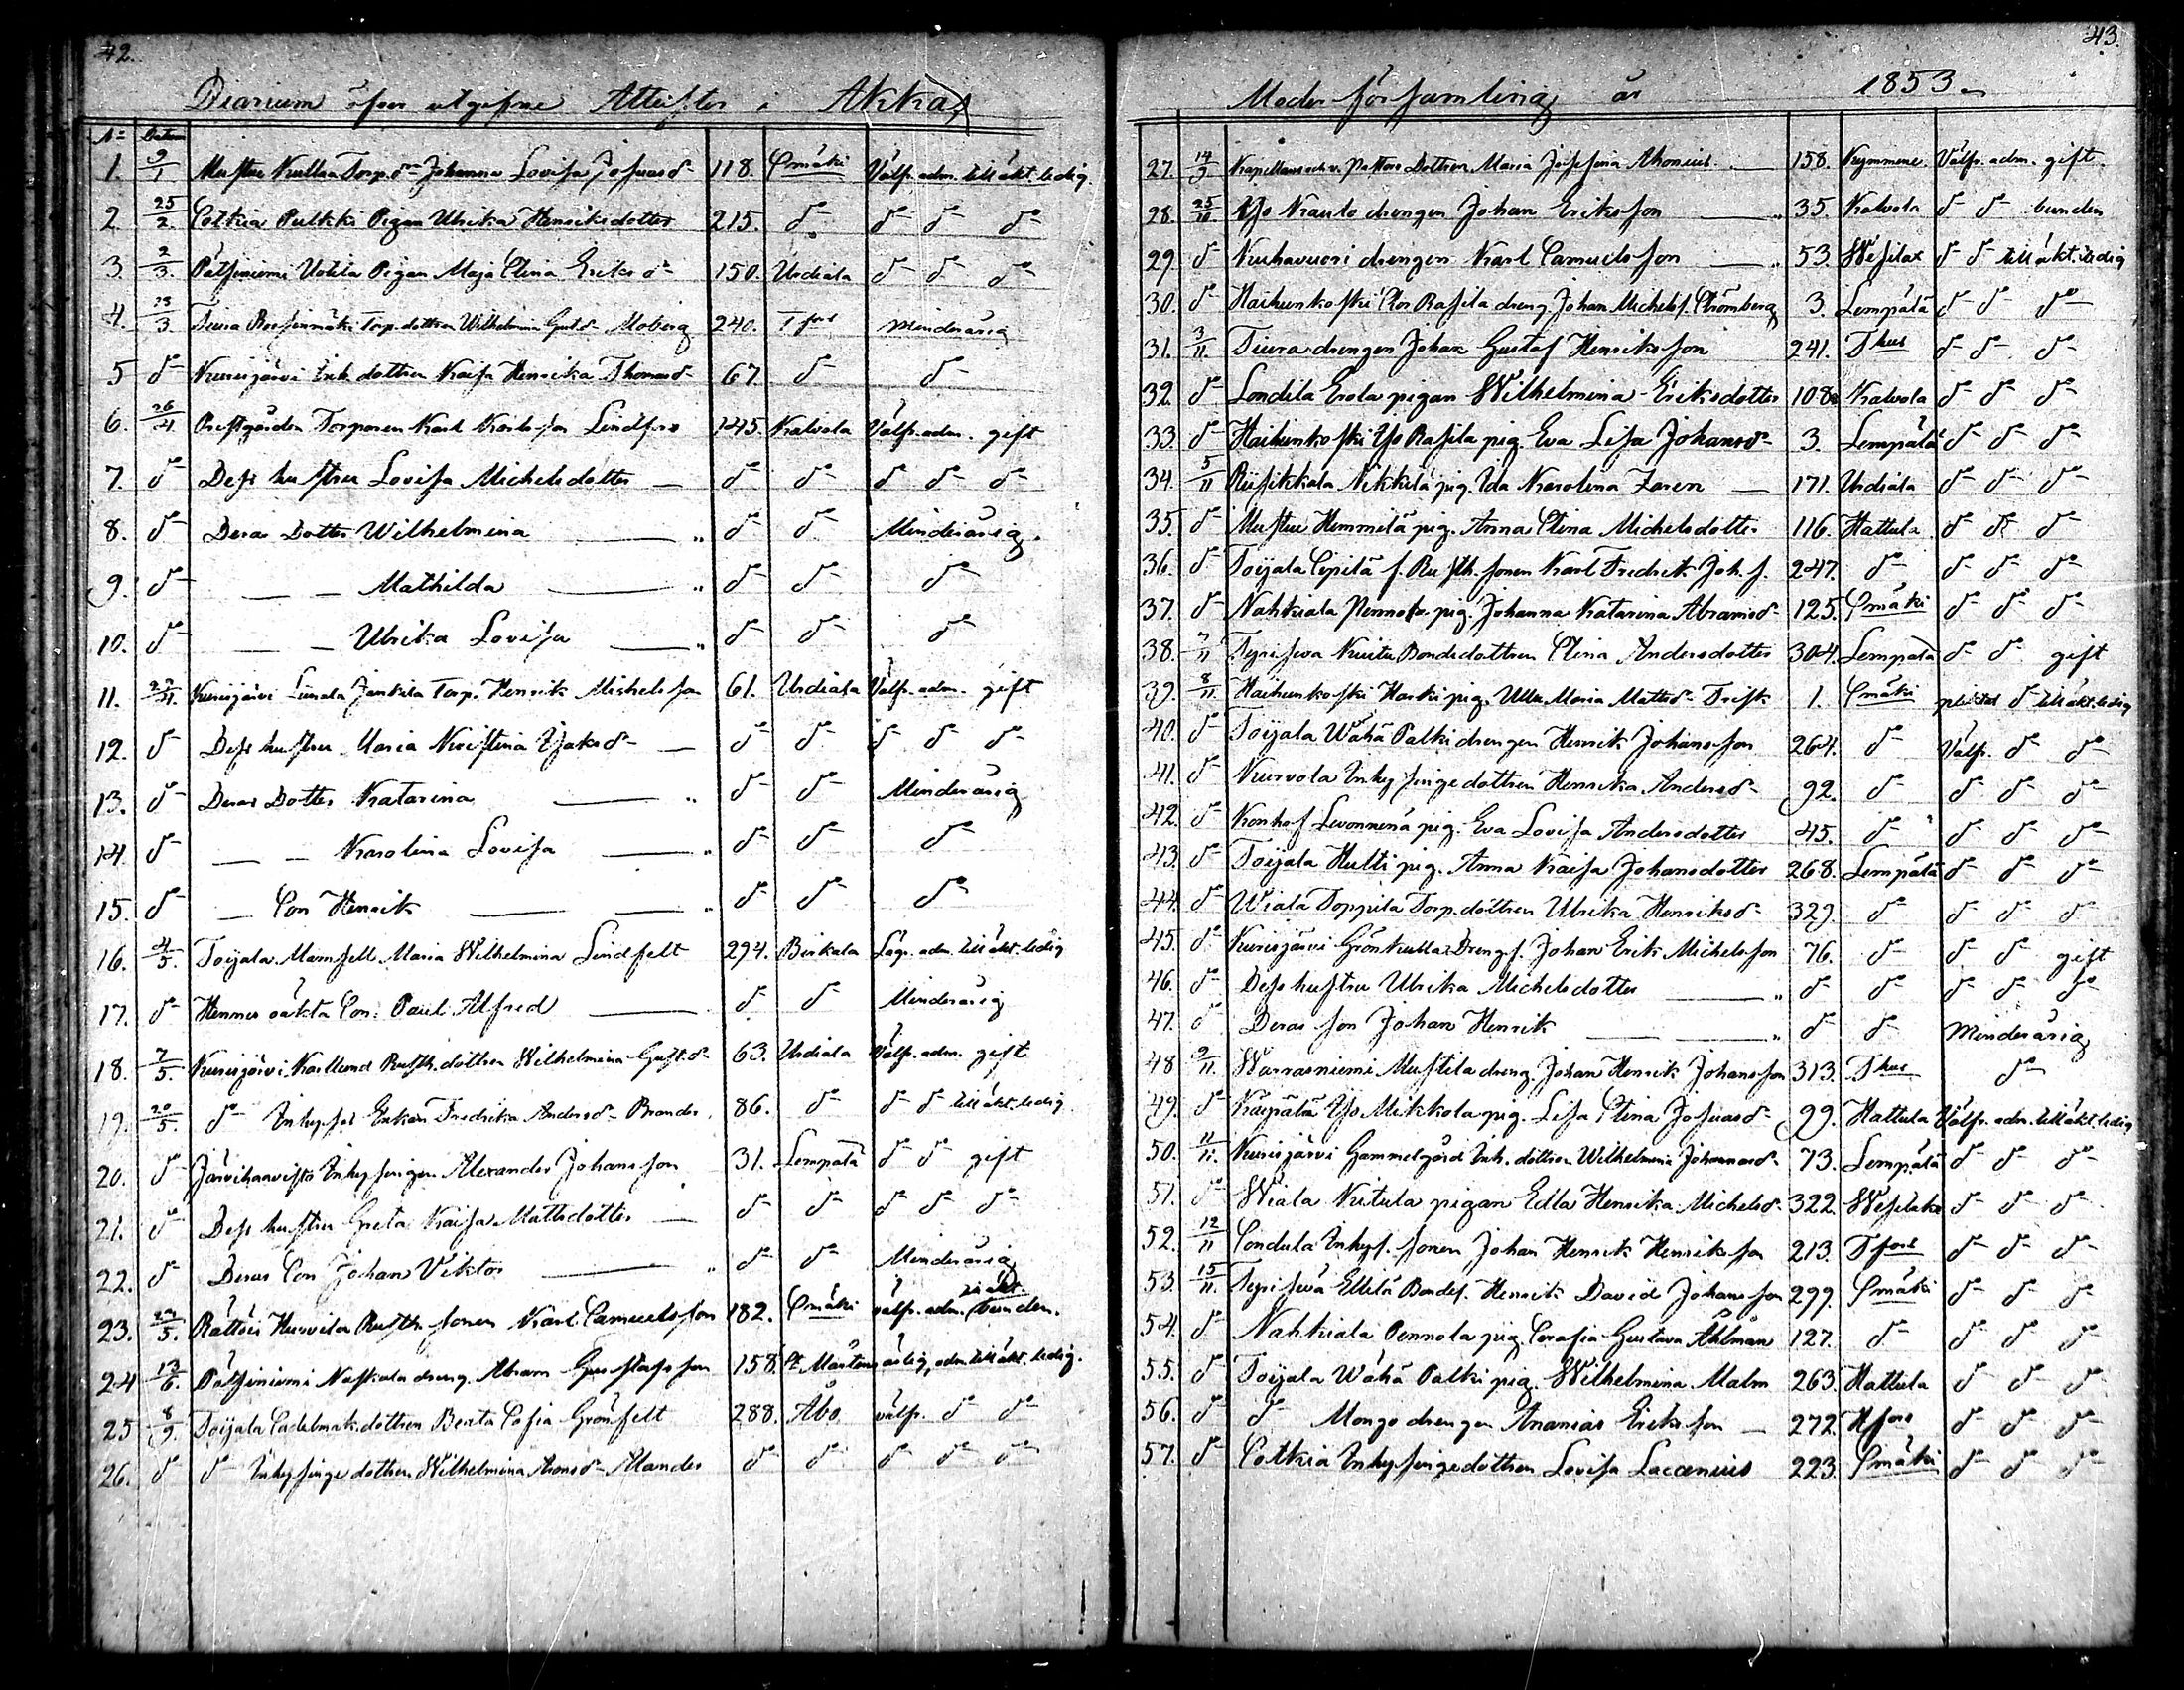 42.
Diarium öfver utgifne Attester i Akkas
No Datum
1. 9/1 Mustue Kulkua Torp. dn Johanna Lovisa Josuasd 118. Smäki Välfr. adm. till äkt. ledig.
2. 25/2. Sotkia Pulkki Pigan Ulrika Henriksdotter 215. do do do do
3. 2/3. Pätsiniemi Uotila Pigan Maja Stina Eriks do 150. Urdiala do do do
4. 23/3. Torp. dottren Wilhelmina Gust. d Moberg 240. Tfors minderårig
5 do Kurisjärvi Inh. dottren Kaisa Henrika Thomasd 67. do do
6. 26/4 Prestgården Torparen Karl Karlsson Lindfors 145. Kalvola Välfr. adm. gift
7. do Dess hustru Lovisa Michelsdotter — do do do do do
8. do Deras Dotter Wilhelmina — do do Minderårig.
9. do — — Mathilda — do do do
10. do — — Ulrika Lovisa — do do do
11. 27/4. Kurisjärvi Jankila Torp. Henrik Michelsson 61. Urdiala Välfr. adm. gift
12. do Dess hustru Maria Kristina Isaksd — do do do do do
13. do Deras Dotter Katarina — do do Minderårig
14. do — — Karolina Lovisa — do do do
15. do — Son Henrik — — do do do
16. 4/5. Toijala Mamsell Maria Wilhelmina Lindfelt 294. Birkala Lagl. adm. till äkt. ledig
17. do Hennes oäkta Son Paul Alfred — do do Minderårig
18. 7/5. Kurisjärvi Karlund Rusth. dottren Wilhelmina Gust. d 63. Urdiala Välfr. adm. gift
19. 20/5. do Inhyses Enkan Fredrika Andersd Brander 86. do do do till äkt. ledig
20. do Järvihaavisto Inhysingen Alexander Johansson 31. Lempälä do do gift
21. do Dess hustru Greta Kaisa Mattsdotter — do do do do do
22. do Deras Son Johan Viktor — do do Minderårig
23. 27/5. Rättöi Hurvila Rusth. sonen Karl Samuelsson 182. Smäki välfr. adm. bunden.
24 13/6. Pätsiniemi Naskala dreng. Abram Gustafsson 158. St Mårtens ärlig, adm. till äkt. ledig.
25 8/9. Toijala Sadelmak. dottren Berta Sofia Grönfelt 288. Åbo välfr. do do
26. do do Inhysinge dottren Wilhelmina Aronsd Alander do do do do do
43.
Moderförsamling år 1853.
27. 14/9 Kapellans och v. Pastors Dottren Maria Josefina Ahonius — 158. Kymmene. Välfr. adm. gift.
28. 25/10 Yso Kauto drengen Johan Eriksson — 35. Kalvola do do bunden
29. do Kuhavuori drengen Karl Samuelsson — 53. Wesilax do do till äkt. ledig
30. do Haihunkoski Stor Rasila dreng. Johan Michelss. Strömberg 3. Lempälä do do do
31. 3/11. Tiura drengen Johan Gustaf Henriksson 241. Thus do do do
32. do Londila Erola pigan Wilhelmina Eriksdotter 108. Kalvola do do do
33. do Haihunkoski Yso Rasila pig. Eva Lisa Johansd 3. Lempälä do do do
34. 5/11 Riisikkala Nikkilä pig. Ida Karolina Zaren — 171. Urdiala do do do
35. do Mustue Hemmilä pig. Anna Stina Michelsdotter 116. Hattula do do do
36. do Toijala Sipilä f. Rusth. sonen Karl Fredrik Joh. s. 247. do do do do
37. do Nahkiala Pennola pig. Johanna Katarina Abramsd 125. Smäki do do do
38. 7/11 Terisseva Kuitu Bondedottren Stina Andersdotter 304. Lempälä do do gift
39. 8/11. Haihunkoski Harki pig. Ulla Maria Mattsd Frisk 1. Smäki pliktad do till äkt. ledig
40. do Toijala Wähä Palki drengen Henrik Johansson 264. do Välfr. do do
41. do Kurvola Inhysingedottren Henrika Andersd 92. do do do do
42. do Konhof Livonnenä pig. Eva Lovisa Andersdotter 45. do do do do
43. do Toijala Hulti pig. Anna Kaisa Johansdotter 268. Lempälä do do do
44. do Wiala Toppila Torp. dottren Ulrika Henriksd 329. do do do do
45. do Kurisjärvi Grönkulla Drengs. Johan Erik Michelsson 76. do do do gift
46. do Dess hustru Ulrika Michelsdotter — do do do do do
47. do Deras son Johan Henrik — — do do Minderårig
48 9/11. Warrasniemi Mustila dreng. Johan Henrik Johansson 313. Thus do
49. do Kaipälä Yso Mikkola pig. Lisa Stina Josuasd 99. Hattula Välfr. adm. till äkt. ledig
50. 11/11. Kurisjärvi Gammelgård Inh. dottren Wilhelmina Johansd 73. Lempälä do do do
51. do Wiala Kitula pigan Edla Henrika Michelsd 322. Wesilaks do do do
52. 12/11 Sondula Inhys. sonen Johan Henrik Henriksson 213. Tfors do do do
53. 15/11. Terissevä Ellilä Bondes. Henrik David Johansson 299. Smäki do do do
54. do Nahkiala Pennola pig. Serafia Gustava Åhlman 127. do do do do
55. do Toijala Wähä Palki pig. Wilhelmina Malm 263. Hattula do do do
56. do do Mongo drengen Ananias Eriksson — 272. Hfors do do do
57. do Sotkia Inhysingedottren Lovisa Lacenius 223. Smäki do do do